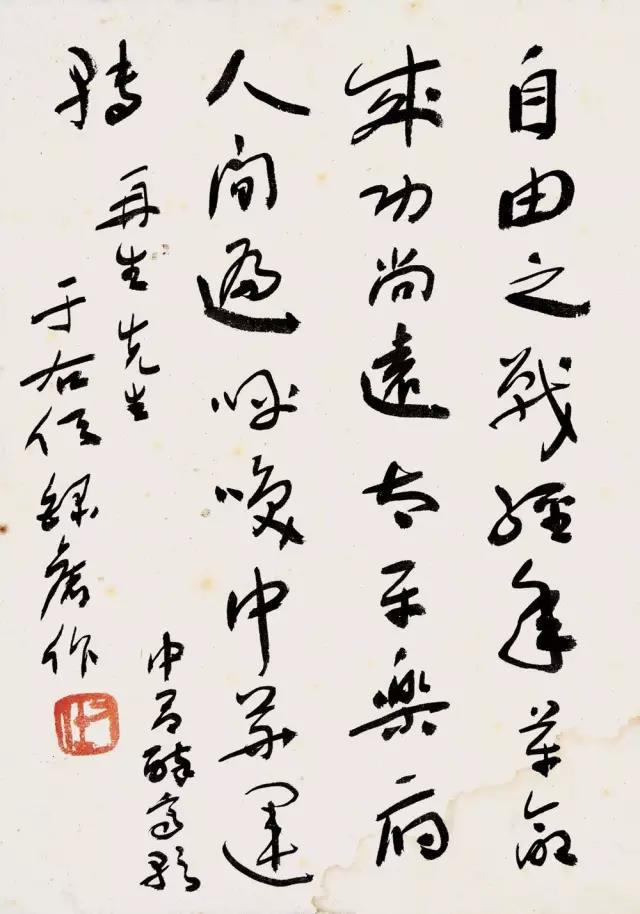 自由之戰經年革命
成功尚遠太平樂府
人間遍呼喚中華運
轉
中呂醉高歌
再生先生
于右任錄舊作